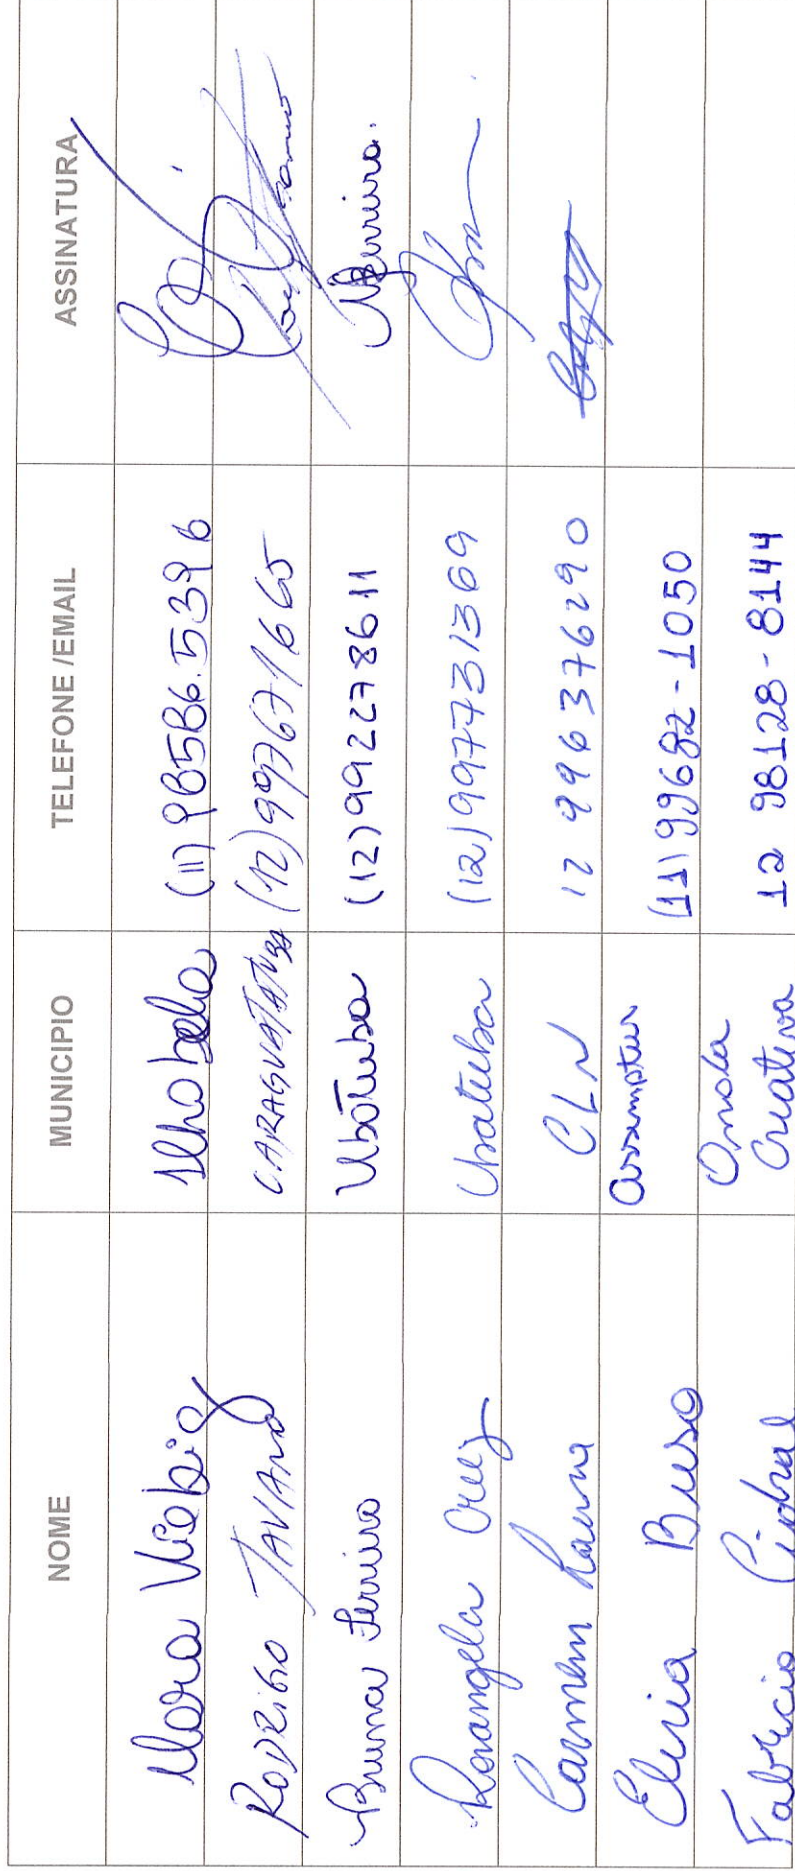 NOME MUNICIPIO TELEFONE /EMAIL ASSINATURA
Mara Ilhabela (11) 96586.5396
RODRIGO TAVANO CARAGUATATUBA (12) 997671665
Bruna Ferreira Ubatuba (12) 992278611 Ferreira.
Rosangela Cruz Ubatuba (12) 997731369
Carmem CLN 12 996376290
Elvia Buso (11) 99682-1050
Fabricio Onda
Criativa 12 98128-8144